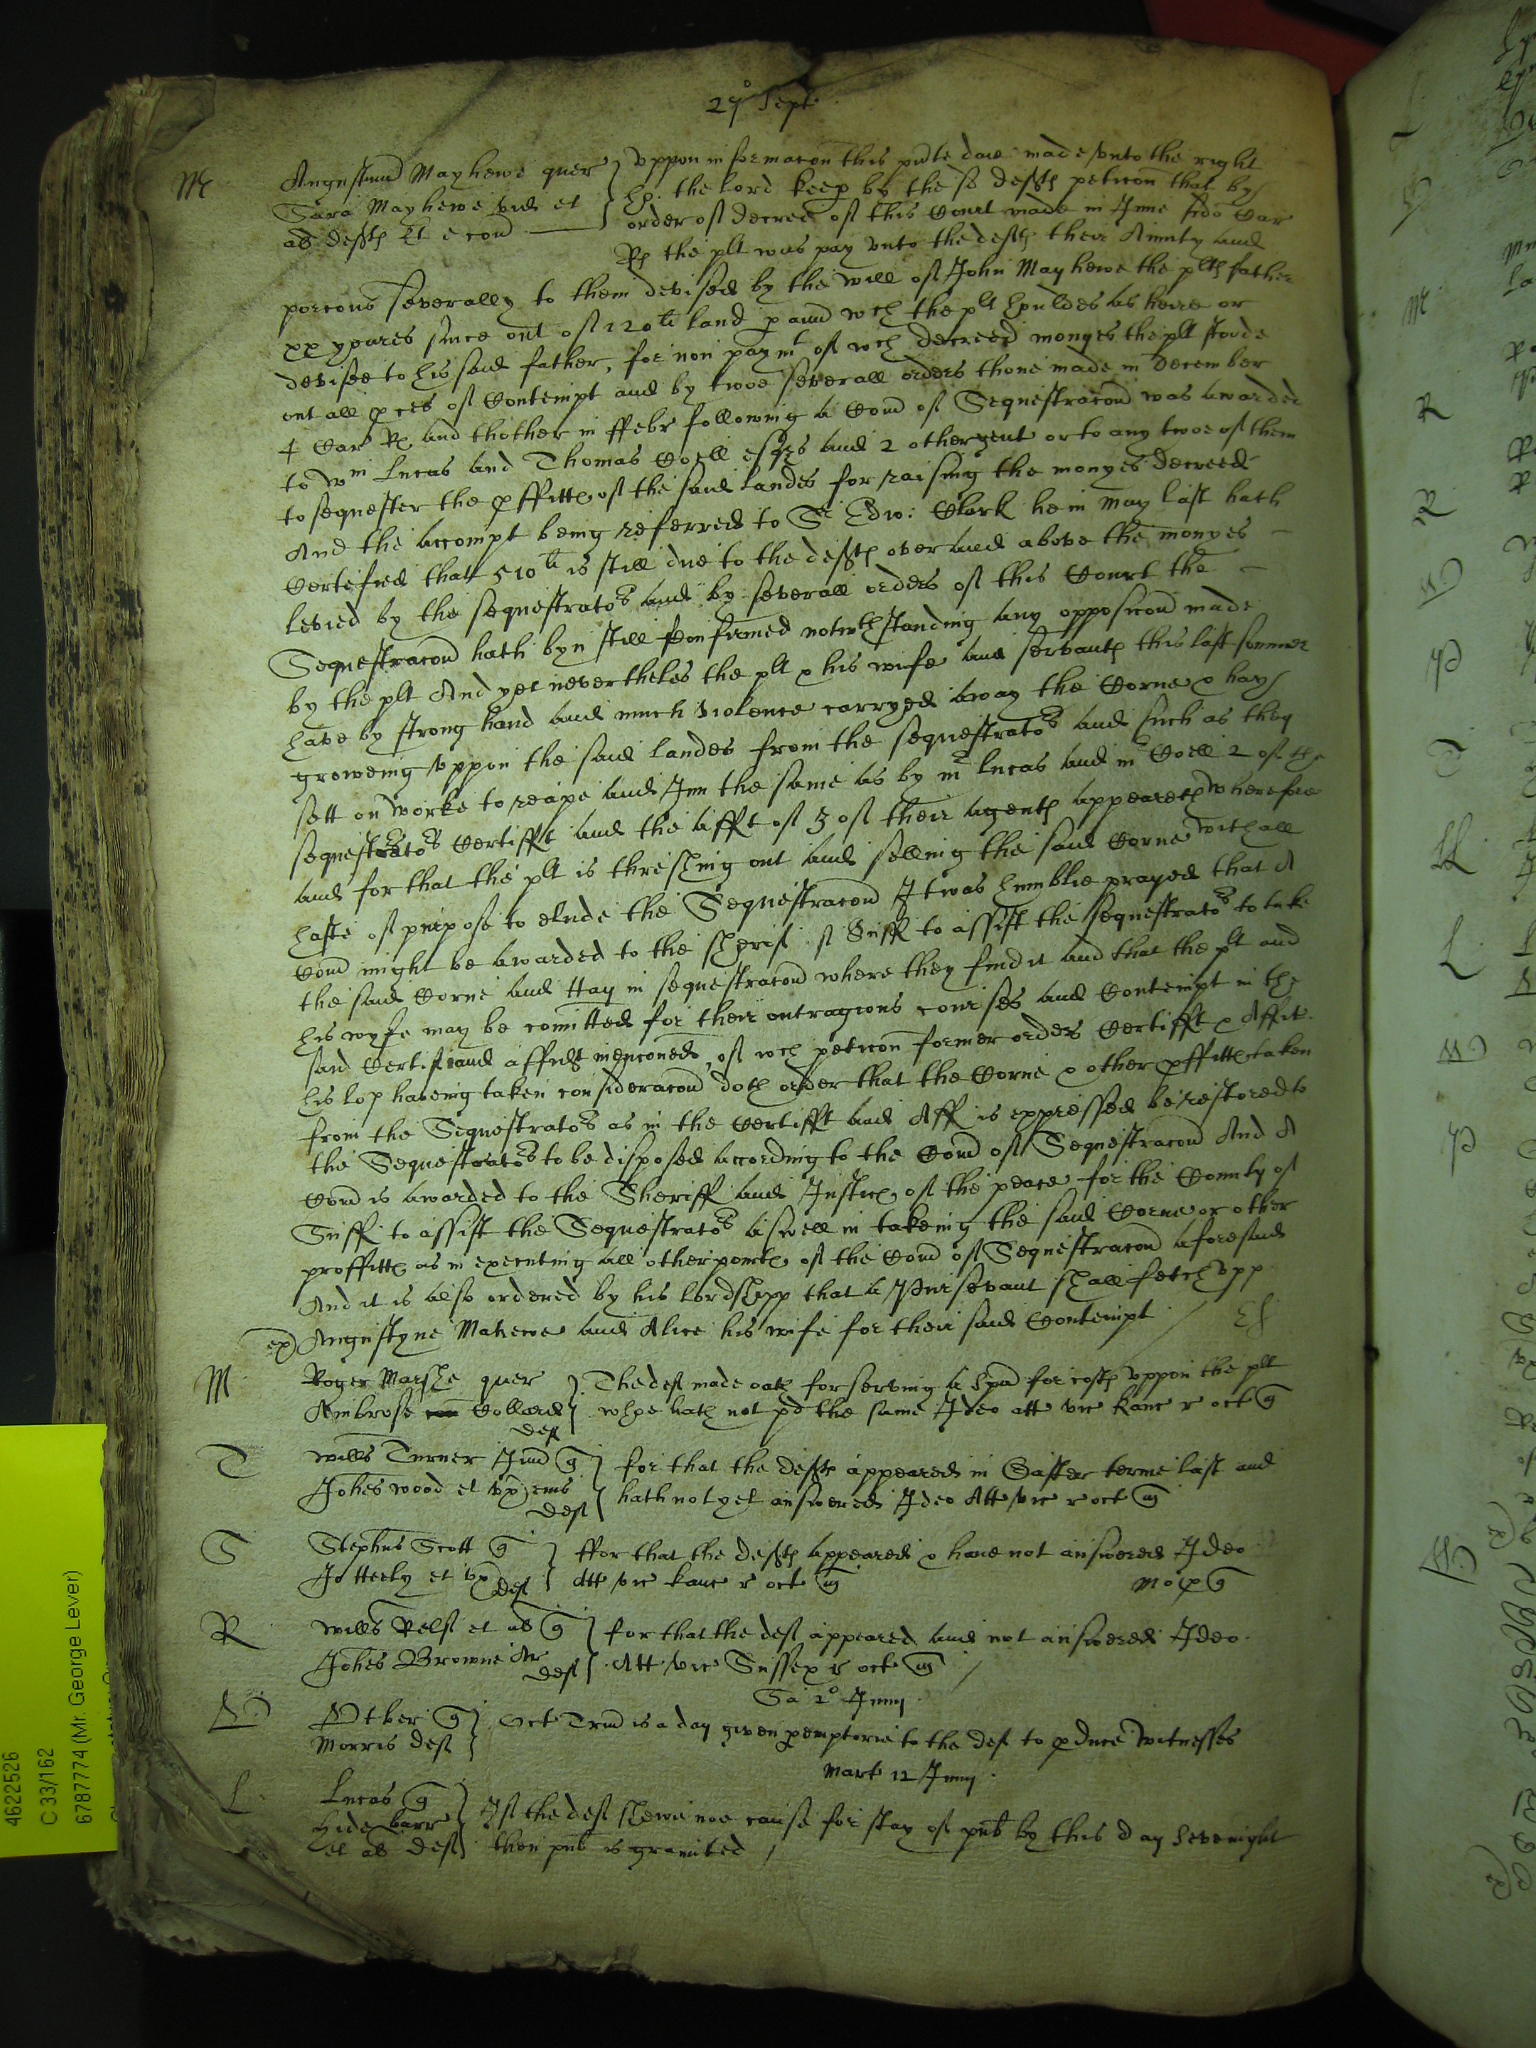 27° Sept
M
Augustinus Mayhewe quer
Sara Mayhewe vid et
al deftes et e con
Uppon informacon this pnte daie made unto the right
ho: the lord keep by the sd deftes peticon that by
order of decree of this Court made in June sedo Car
Rs the plt was pay unto the deftes their Annuty and
porcons severally to them devised by the will of John Mayhewe the pltes father
xx yeares since out of 120li land p ann wch the plt houldes as heire or
devisee to his said father, for non paymt of wch decreed monyes the plt stoode
out all pces of Contempt and by twoe severall orders thone made in December
4 Car Rs and thother in ffebr following a Com of Sequestracon was awarded
to Wm Lucas and Thomas Coell esqrs and 2 other gent or to any twoe of them
to sequester the pffittes of the said landes for raising the monyes decreed
And the accompt being referred to Sr Edw: Clark he in May last hath
Certefied that 510li is still due to the deftes over and above the monyes
levied by the sequestrators and by severall orders of this Court the
Sequestracon hath byn still Confirmed notwthstanding any opposicon made
by the plt And yet nevertheles the plt & his wife and servantes this last sommer
have by strong hand and much violence carryed away the Corne & hay
groweing uppon the said landes from the sequestrators and such as they
sett on worke to reape and Inn the same as by mr Lucas and mr Coell 2 of the
sequestrators Certifft and the afft of 3 of their agentes appeareth Wherefore
and for that the plt is threshing out and selling the said Corne with all
haste of purpose to elude the Sequestracon It was humblie prayed that A
Com might be awarded to the sherif of Suff to assist the sequestrators to take
the said Corne and Hay in sequestracon where they find it and that the plt and
his wyfe may be comitted for their outragious courses and Contempt in the
said Certif and affidt menconed, of wch peticon former orders Certifft & Affit
his lop haveing taken consideracon doth order that the Corne & other pffittes taken
from the Sequestrators as in the Certifft and Aff is expressed be restored to
the Sequestrators to be disposed according to the Com of Sequestracon And A
Com is awarded to the Sheriff and Justices of the peace for the County of
Suff to assist the Sequestrators aswell in takeing the said Corne or other
proffittes as in executing all other pointes of the Com of Sequestracon aforesaid
And it is also ordered by his lordshipp that a Pursevant shall fetch upp
ex Augustyne Mahewe and Alice his wife for their said Contempt
M
Roger Marshe quer
Ambrose Collard
def
The def made oath for serving a Spna for costes uppon the plt
whoe hath not pd the same Ideo att vic Kanc r oct
T
Wills Turner Jun q
Johes Wood et ux eius
def
for that the deftes appeared in Easter terme last and
hath not yet answered Ideo Att vic r oct m
S
Stephus Scott q
Jo et ux def
ffor that the deftes appeared & have not answered Ideo
Att vic Kanc r oct m
R
Wills Relf et al q
Johes Browne Ar
def
for that the def appeared and not answered Ideo
Att vic Sussex r oct m
Sa 2° Junij
q
Morris def
Oct Trin is a day given pemptorie to the def to pduce Witnesses
Mart 12 Junij
L
Lucas q
Hide barr
et al def
If the def shewe noe cause for stay of publ by this day sevenight
then publ is graunted
4622526
C 33/162
6787774 (Mr. George Lever)